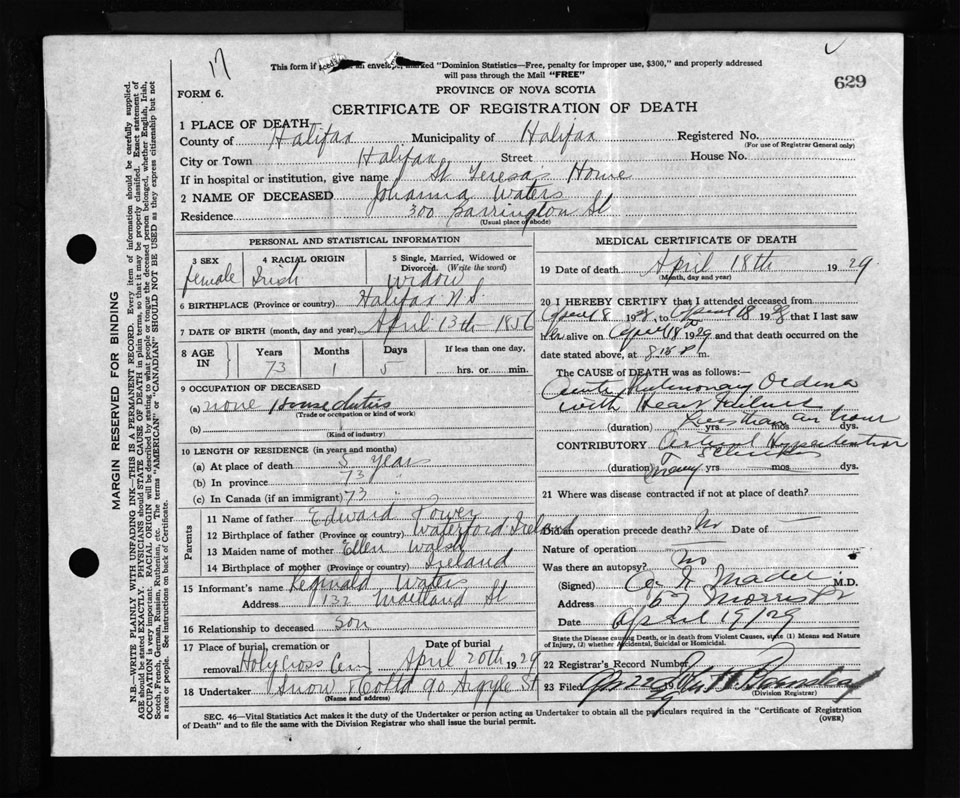 17
This form if an envelope, marked "Dominion Statistics—Free, penalty for improper use, $300," and properly addressed
will pass through the Mail "FREE"
629
FORM 6.
PROVINCE OF NOVA SCOTIA
CERTIFICATE OF REGISTRATION OF DEATH
MARGIN RESERVED FOR BINDING
N.B.—WRITE PLAINLY WITH UNFADING INK—THIS IS A PERMANENT RECORD. Every item of information should be carefully supplied.
AGE should be stated EXACTLY. PHYSICIANS should STATE CAUSE OF DEATH in plain terms, so that it may be properly classified. Exact statement of
OCCUPATION is very important. RACIAL ORIGIN will be described by stating to what people or tongue the deceased person belonged, whether English, Irish,
Scotch, French, German, Russian, Ruthenian, etc. The terms "AMERICAN" or "CANADIAN" SHOULD NOT BE USED as they express citizenship but not
a race or people. See instructions on back of Certificate.
1 PLACE OF DEATH
County of Halifax Municipality of Halifax Registered No.
(For use of Registrar General only)
City or Town Halifax Street House No.
If in hospital or institution, give name St Teresa's Home
2 NAME OF DECEASED Johanna Waters
Residence 300 Barrington St
(Usual place of abode)
PERSONAL AND STATISTICAL INFORMATION
3 SEX 4 RACIAL ORIGIN 5 Single, Married, Widowed or
Divorced. (Write the word)
female Irish widow
6 BIRTHPLACE (Province or country) Halifax N.S.
7 DATE OF BIRTH (month, day and year) April 13th 1856
8 AGE IN Years Months Days If less than one day,
73 1 5 hrs. or min.
9 OCCUPATION OF DECEASED
(a) none House duties
(Trade or occupation or kind of work)
(b)
(Kind of industry)
10 LENGTH OF RESIDENCE (in years and months)
(a) At place of death 5 years
(b) In province 73
(c) In Canada (if an immigrant) 73 "
Parents
11 Name of father Edward Power
12 Birthplace of father (Province or country) Waterford Ireland
13 Maiden name of mother Ellen Walsh
14 Birthplace of mother (Province or country) Ireland
15 Informant's name Reginald Waters
Address 132 Maitland St
16 Relationship to deceased son
17 Place of burial, cremation or Date of burial
removal Holy Cross Cem April 20th 1929
18 Undertaker Snow 90 Argyle St
(Name and address)
MEDICAL CERTIFICATE OF DEATH
19 Date of death April 18th 1929
(Month, day and year)
20 I HEREBY CERTIFY that I attended deceased from
April 8 1928, to April 18 1928 that I last saw
her alive on April 18 1929 and that death occurred on the
date stated above, at 8.15 P m.
The CAUSE of DEATH was as follows:—
Acute Pulmonary Oedema
with Heart Failure
(duration) Less than an hour yrs mos dys.
CONTRIBUTORY Arterial Hypertension
(duration) many yrs mos dys.
21 Where was disease contracted if not at place of death?
Did an operation precede death? No Date of —
Nature of operation —
Was there an autopsy? No
(Signed) M.D.
Address 67 Morris St
Date April 19/29
State the Disease causing Death, or in death from Violent Causes, state (1) Means and Nature
of Injury, (2) whether Accidental, Suicidal or Homicidal.
22 Registrar's Record Number
23 Filed Apr 22
(Division Registrar)
SEC. 46—Vital Statistics Act makes it the duty of the Undertaker or person acting as Undertaker to obtain all the particulars required in the "Certificate of Registration
of Death" and to file the same with the Division Registrar who shall issue the burial permit.
(OVER)